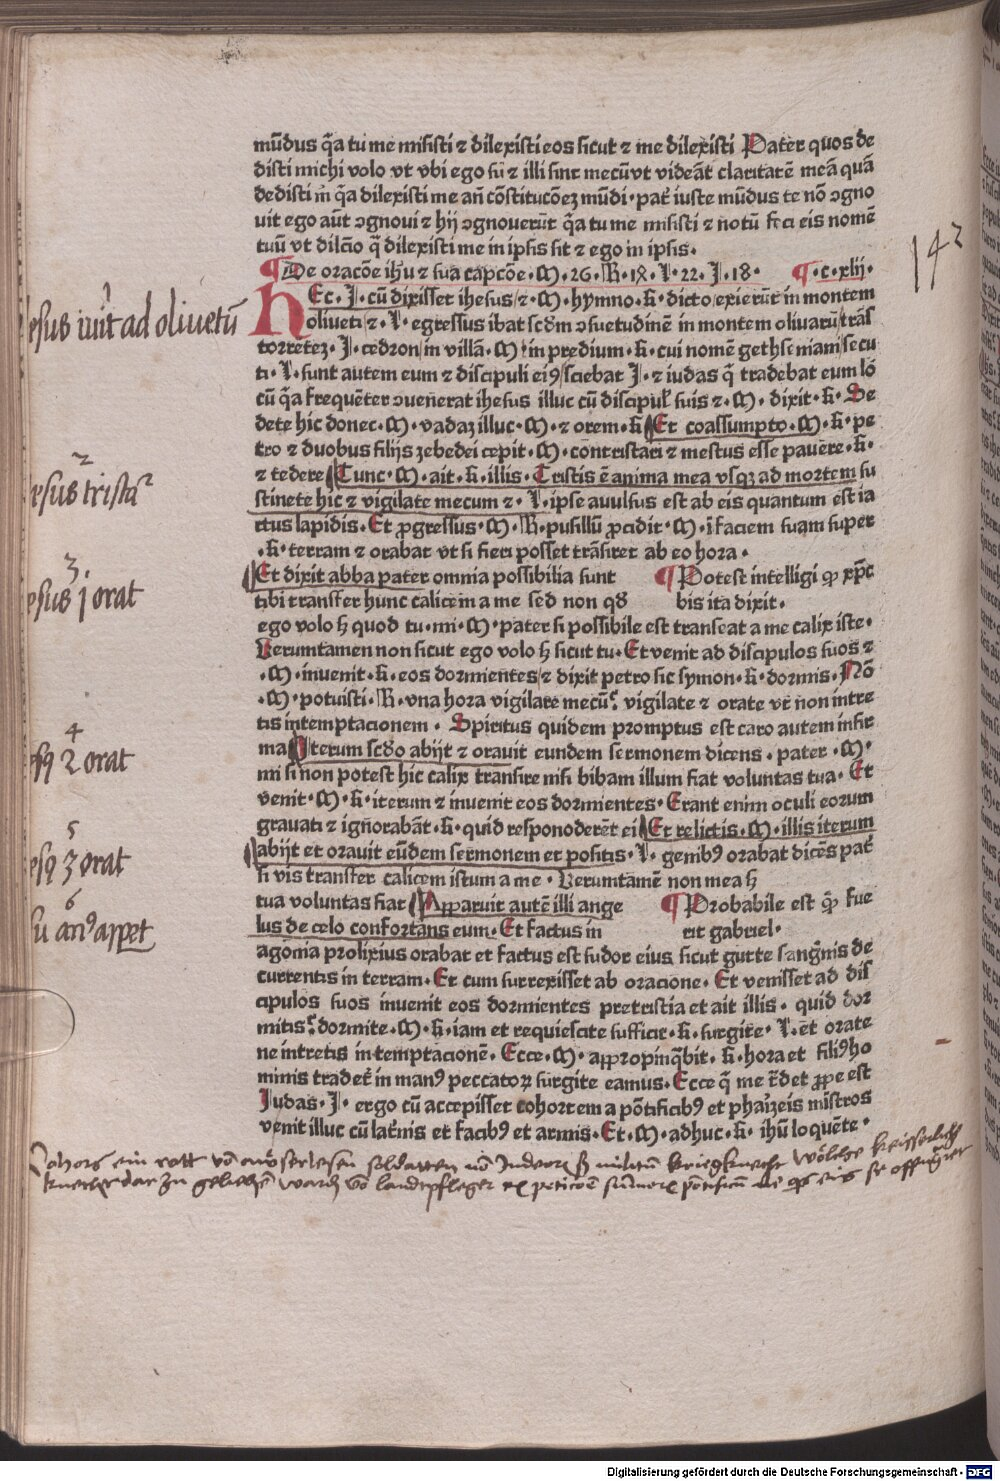 mūdus q̄a tu me misisti ⁊ dilexisti eos sicut ⁊ me dilexisti Pater quos de
disti michi volo vt vbi ego sū ⁊ illi sint mecū vt videāt claritatē meā quā
dedisti m̄ q̄a dilexisti me an̄ cōstitucōeʒ mūdi · pat̄ iuste mūdus te nō ꝯgno
uit ego aūt ꝯgnoui ⁊ hij ꝯgnouerūt q̄a tu me misisti ⁊ notū feci eis nomē
tuū vt dilc̄o q̄ dilexisti me in ipsis sit ⁊ ego in ipsis ·
¶ De oracōe ih̄u ⁊ sua capcōe · M · 26 · R · 18 · L · 22 · J · 18 · ¶ · c · xlij ·
HEc · J · cū dixisset ihesus ⁊ · M · hymno · R · dicto exierūt in montem
oliueti ⁊ · L · egressus ibat scd̄m ꝯsuetudinē in montem oliuarū trās
torreteʒ · J · cedron in villā · M · in predium · R · cui nomē gethsemiani secu
ti · L · sunt autem eum ⁊ discipuli eiꝰ sciebat J · ⁊ iudas q̄ tradebat eum lo
cū q̄a frequēter ꝯuenerat ihesus illuc cū discipul' suis ⁊ · M · dixit · R · Se
dete hic donec · M · vadaʒ illuc · M · ⁊ orem · R Et coassumpto · M · R · pe
tro ⁊ duobus filijs zebedei cepit · M · contristari ⁊ mestus esse pauere · R ·
⁊ tedere Tunc · M · ait · R · illis · Tristis ē anima mea vsqʒ ad mortem su
stinete hic ⁊ vigilate mecum ⁊ · L · ipse auulsus est ab eis quantum est ia
ctus lapidis · Et ꝓgressus · M · R · pusillū ꝓcidit · M · ī faciem suam super
· R · terram ⁊ orabat vt si fieri posset trāsiret ab eo hora ·
Et dixit abba pater omnia possibilia sunt
tibi transfer hunc calicem a me sed non qđ
¶ Potest intelligi ꝙ xp̄c
bis ita dixit ·
ego volo ꝫ quod tu · mi · M · pater si possibile est transeat a me calix iste ·
Verumtamen non sicut ego volo ꝫ sicut tu · Et venit ad discipulos suos ⁊
· M · inuenit · R · eos dormientes ⁊ dixit petro sic symon · R · dormis · Nō
· M · potuisti · R · vna hora vigilare mecū · vigilate ⁊ orate vt non intre
tis in temptacionem · Spiritus quidem promptus est caro autem infir
ma Iterum scd̄o abijt ⁊ orauit eundem sermonem dicens · pater · M ·
mi si non potest hic calix transire nisi bibam illum fiat voluntas tua · Et
venit · M · R · iterum ⁊ inuenit eos dormientes · Erant enim oculi eorum
grauati ⁊ ignorabāt · R · quid responoderēt ei Et relictis · M · illis iterum
abijt et orauit eūdem sermonem et positis · L · genibꝰ orabat dicēs pat̄
si vis transfer calicem istum a me · Verumtamē non mea ꝫ
tua voluntas fiat Apparuit autē illi ange
lus de celo confortans eum · Et factus in
¶ Probabile est ꝙ fue
rit gabriel ·
agonia prolixius orabat et factus est sudor eius sicut gutte sangnis de
currentis in terram · Et cum surrexisset ab oracione · Et venisset ad dis
cipulos suos inuenit eos dormientes pre tristia et ait illis · quid dor
mitis · dormite · M · R · iam et requiescite sufficit · R · surgite · L · et orate
ne intretis in temptacionē · Ecce · M · appropinq̄bit · R · hora et filiꝰ ho
minis tradet̄ in manꝰ peccatoꝝ surgite eamus · Ecce q̄ me t̄det ꝓpe est
Iudas · J · ergo cū accepisset cohortem a pōtificibꝰ et phaizeis mīstros
venit illuc cū lat̄nis et facibꝰ et armis · Et · M · adhuc · R · ih̄u loquēte ·
142
esus iuit ad oliuetū
2
esus trista
3
esus 1 orat
4
esꝰ 2 orat
5
esꝰ 3 orat
6
su anꝰ appet
Cohors ein rott von
Digitalisierung gefördert durch die Deutsche Forschungsgemeinschaft - DFG